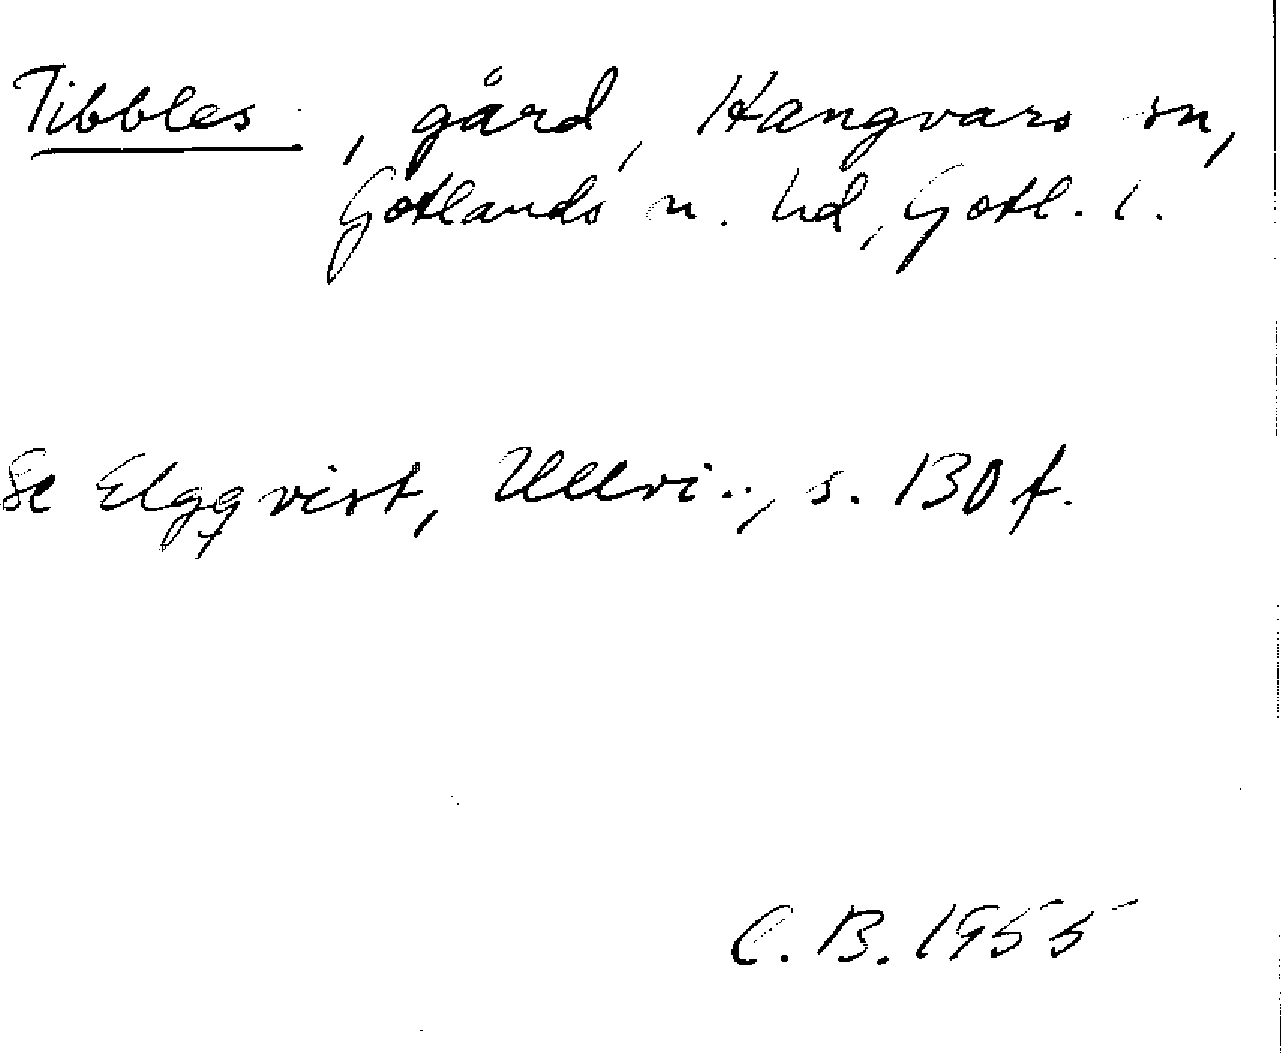 Tibbles, gård, Hangvars sn,
Gotlands n. hd, Gotl. l.
Se Elgqvist, Ullvi.., s. 130 f.
C. B. 1955